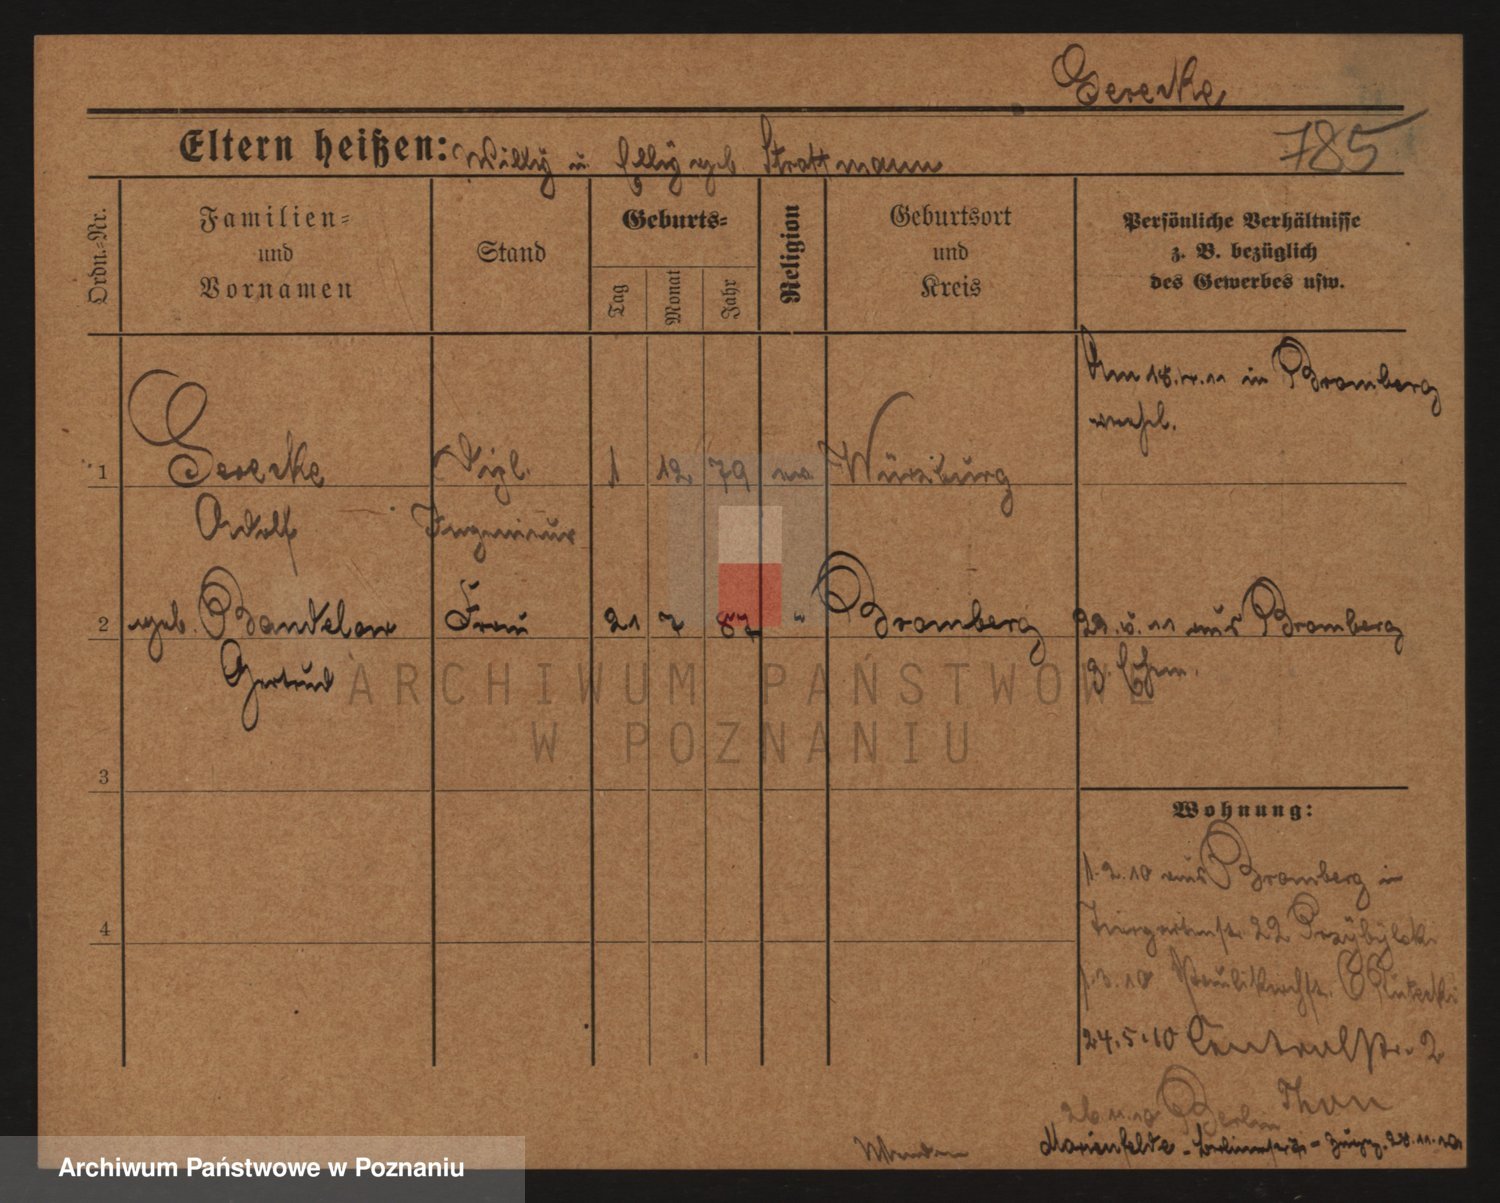 Gerecke
785
Eltern heißen: Willy u. Elly geb Strattmann
Ordn.-Nr.
Familien-
und
Vornamen
Stand
Geburts-
Tag
Monat
Jahr
Religion
Geburtsort
und
Kreis
Persönliche Verhältnisse
z. B. bezüglich
des Gewerbes usw.
Am 18. 4. 11 in Bromberg
verehel.
1 Gerecke Dipl. 1 12 79 ev Würzburg
Adolf Ingenieur
2 geb. Bandelow Frau 21 7 87 " Bromberg 29. 5. 11 aus Bromberg
Gertrud z. Ehem.
ARCHIWUM PAŃSTWOWE
W POZNANIU
3
Wohnung:
1. 2. 10 aus Bromberg in
4 Tiergartenstr. 22 Przybylski
1. 3. 10 Paulikirchstr.
24. 5. 10 Centralstr. 2
26 11. 10 Berlin Thon
Marienfelde - Berlinerstr. 28. 11. 10
Archiwum Państwowe w Poznaniu